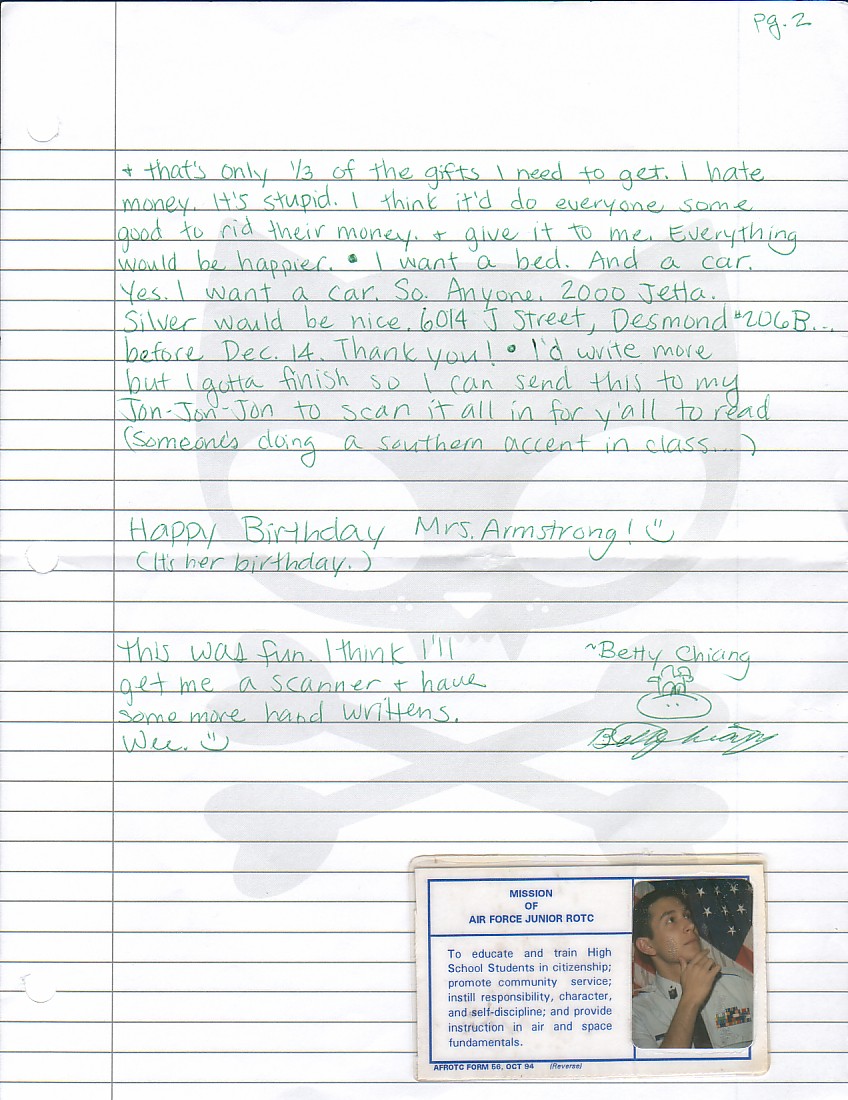 pg. 2
+ that's only 1/3 of the gifts I need to get. I hate
money. It's stupid. I think it'd do everyone some
good to rid their money. + give it to me. Everything
would be happier. • I want a bed. And a car.
Yes. I want a car. So. Anyone. 2000 Jetta.
Silver would be nice. 6014 J Street, Desmond #206B...
before Dec. 14. Thank you! • I'd write more
but I gotta finish so I can send this to my
Jon-Jon-Jon to scan it all in for y'all to read
(Someone's doing a southern accent in class...)
Happy Birthday Mrs. Armstrong!
(It's her birthday.)
this was fun. I think I'll
get me a scanner + have
some more hand writtens.
Wee.
~Betty Chiang
Betty Chiang
MISSION
OF
AIR FORCE JUNIOR ROTC
To educate and train High
School Students in citizenship;
promote community service;
instill responsibility, character,
and self-discipline; and provide
instruction in air and space
fundamentals.
AFROTC FORM 56, OCT 94 (Reverse)